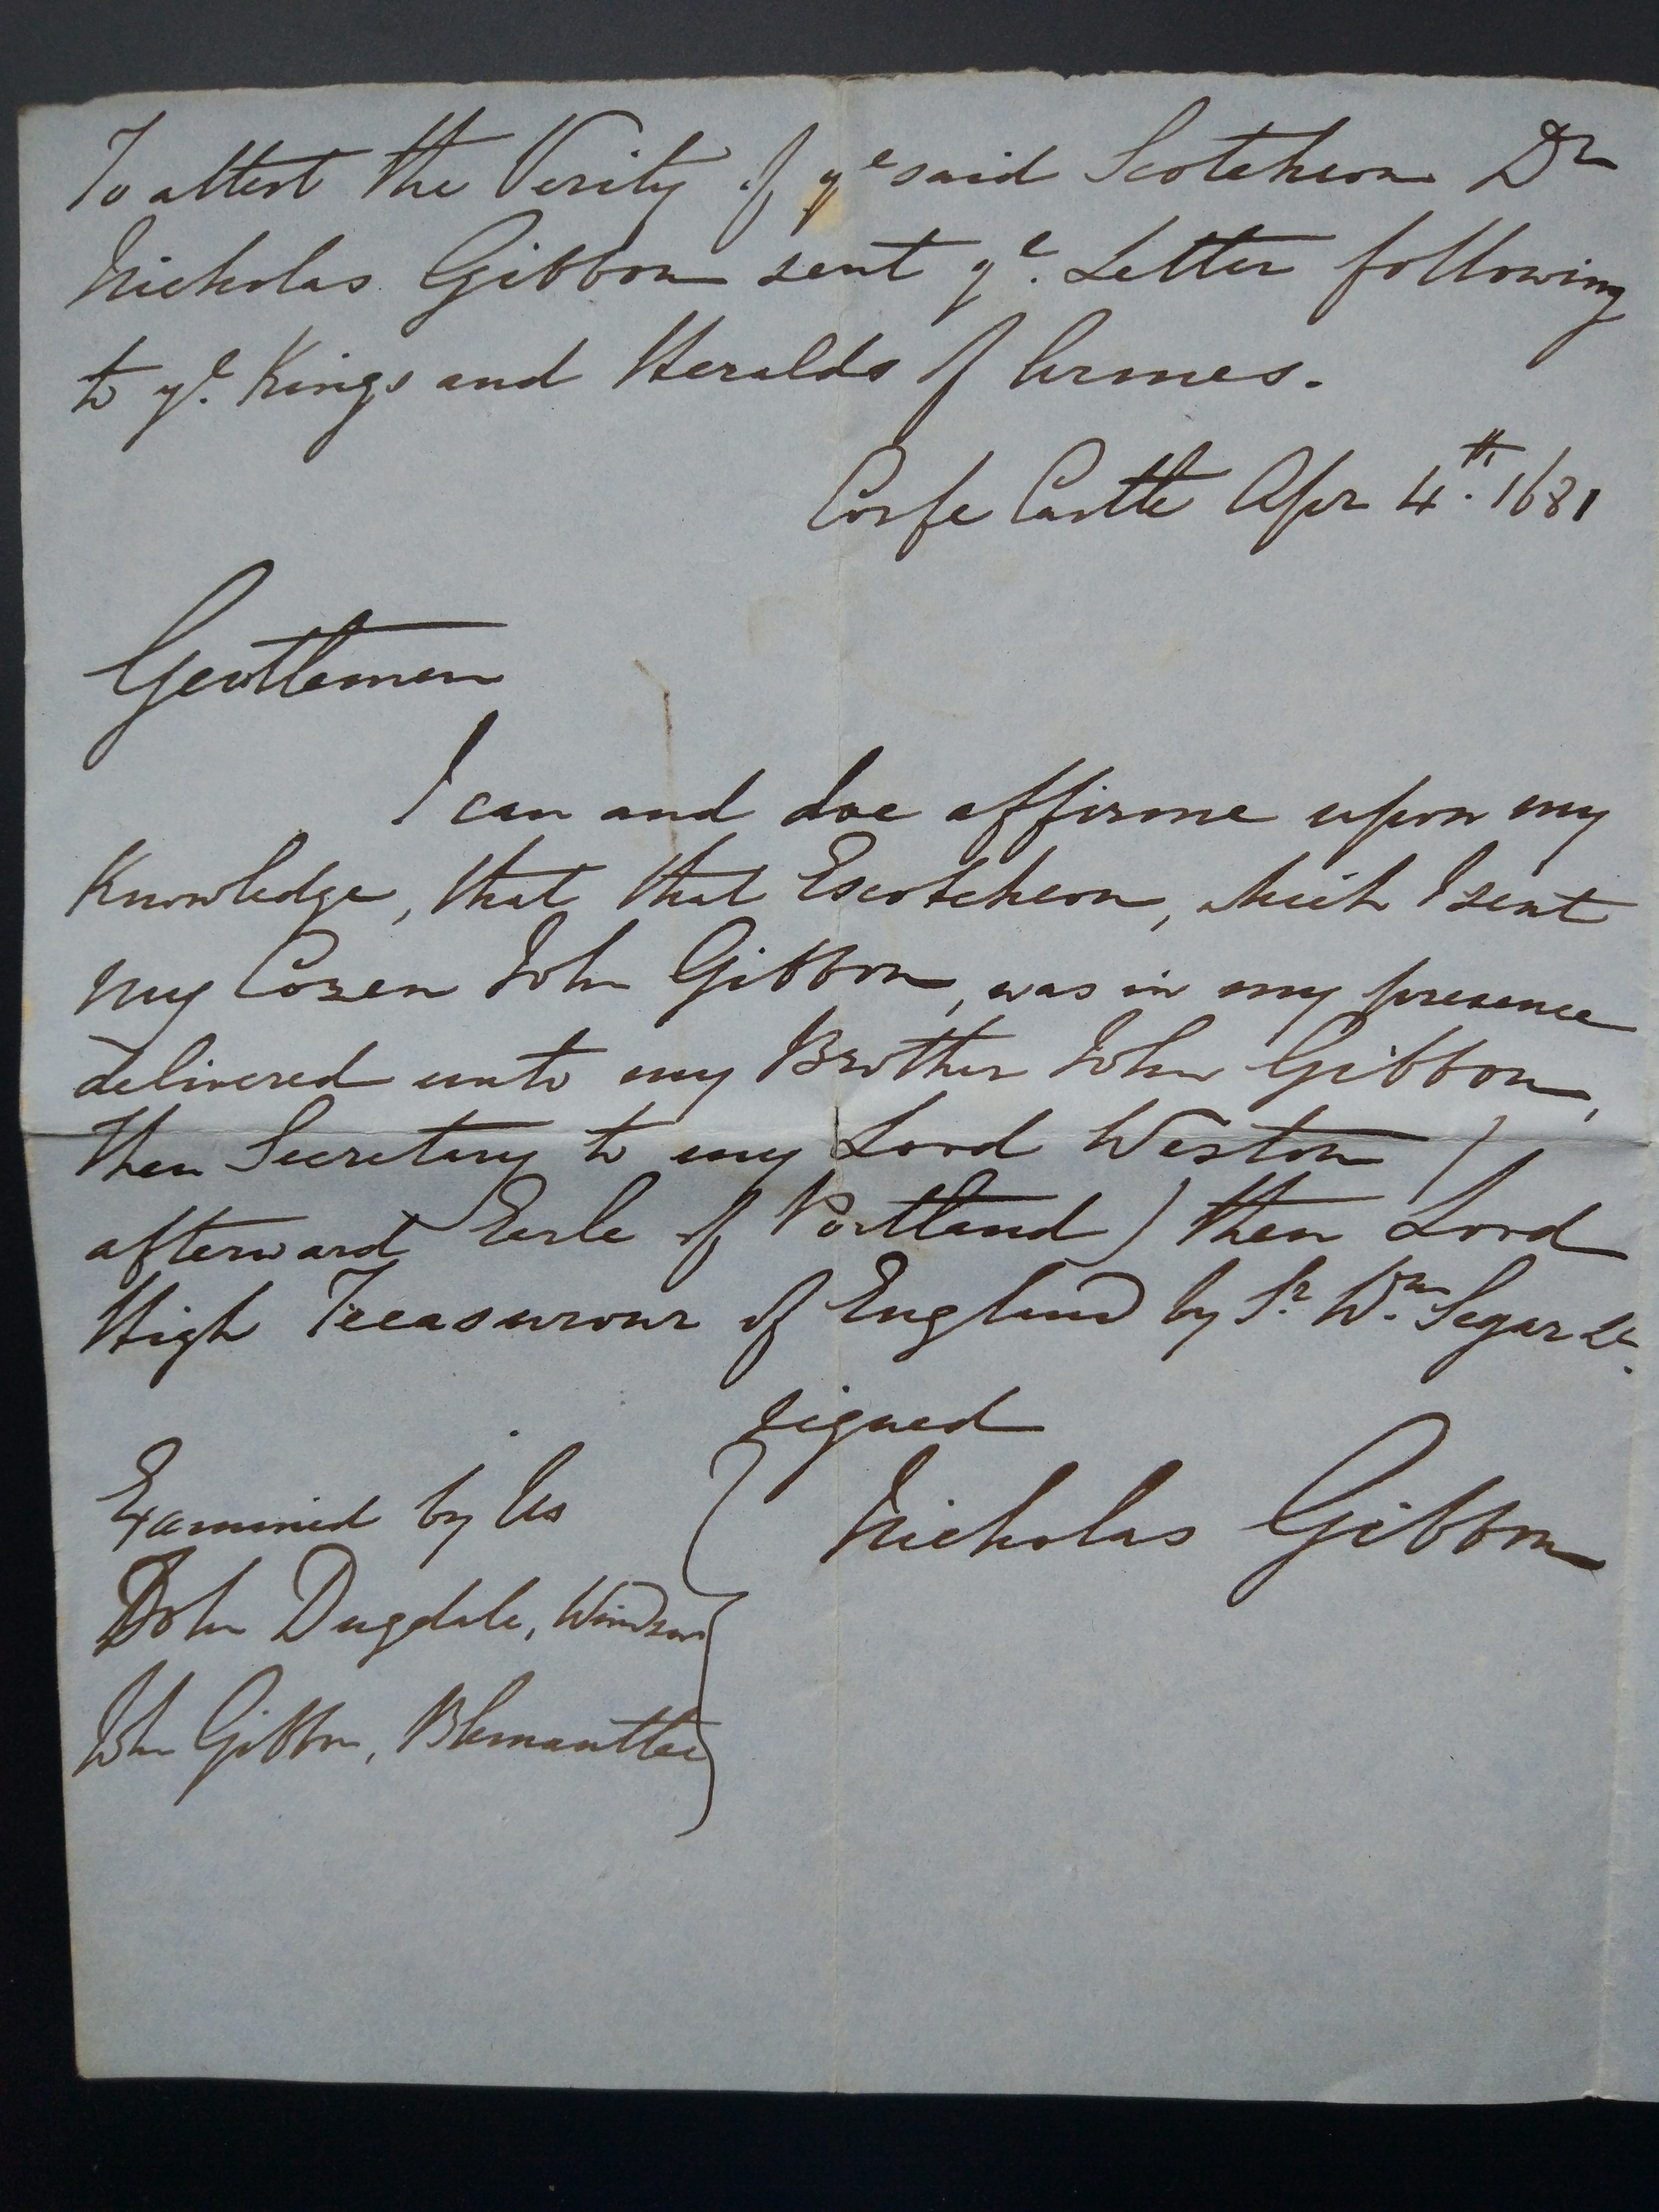 To attest the Verity of yᵉ said Scotcheon Dʳ
Nicholas Gibbon sent yᵉ. Letter following
to yᵉ. Kings and Heralds of Armes.
Corfe Castle Apr 4ᵗʰ. 1681
Gentlemen
I can and doe affirme upon my
Knowledge, that that Escotcheon, which I sent
my Cozen John Gibbon, was in my presence
delivered unto my Brother John Gibbon,
then Secretary to my Lord Weston (
afterward Eerle of Portland) then Lord
High Treasurour of England by Sʳ. Wᵐ. Segar &c.
signed
Nicholas Gibbon
Examined by Us
John Dugdale, Windsor
John Gibbon, Blemantle